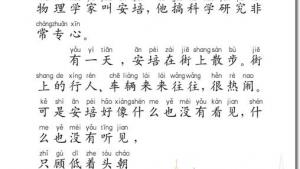 物理学家叫安培，他搞科学研究非
cháng zhuān xīn
常专心。
yǒu yì tiān ān péi zài jiē shang sàn bù jiē
有一天，安培在街上散步。街
shang de xíng rén chē liàng lái lái wǎng wǎng hěn rè nao
上的行人、车辆来来往往，很热闹。
kě shì ān péi hǎo xiàng shén me yě méi yǒu kàn jiàn shén
可是安培好像什么也没有看见，什
me yě méi yǒu tīng jiàn
么也没有听见，
zhǐ gù dī zhe tóu cháo
只顾低着头朝